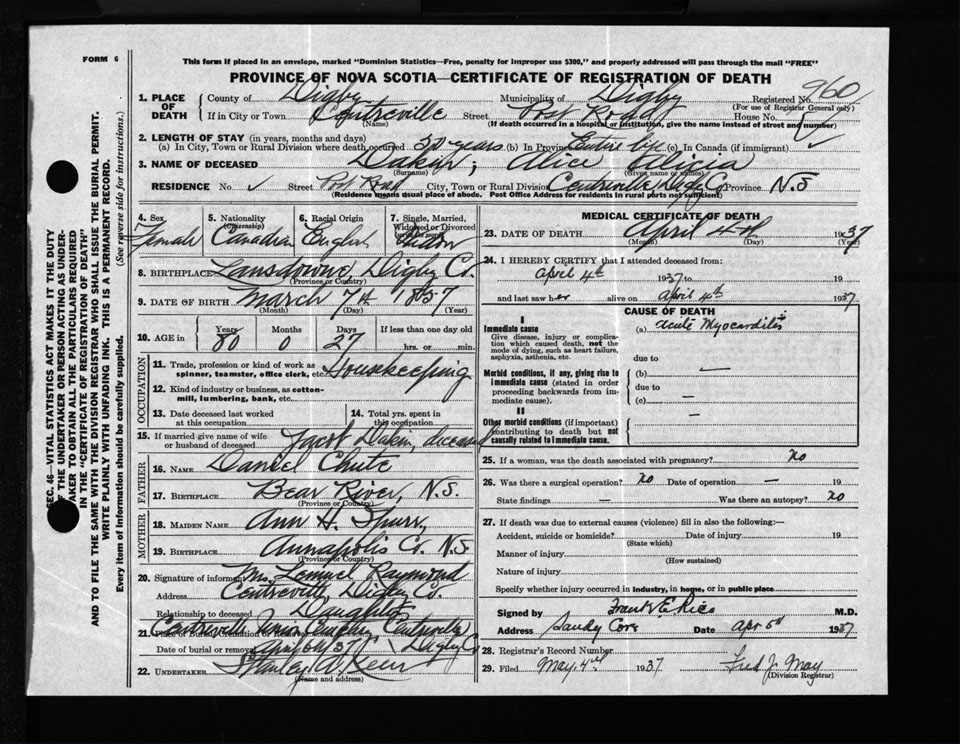 FORM 6
This form if placed in an envelope, marked "Dominion Statistics—Free, penalty for improper use $300," and properly addressed will pass through the mail "FREE"
PROVINCE OF NOVA SCOTIA—CERTIFICATE OF REGISTRATION OF DEATH
960
1. PLACE OF DEATH { County of Digby Municipality of Digby Registered No.
(For use of Registrar General only)
If in City or Town Centreville Street Post Road House No.
(Name) (If death occurred in a hospital or institution, give the name instead of street and number)
2. LENGTH OF STAY (in years, months and days)
(a) In City, Town or Rural Division where death occurred 50 years. (b) In Province Entire life (c) In Canada (if immigrant) ✓
3. NAME OF DECEASED Dakin, Alice Alicia
(Surname) (Given name or names)
RESIDENCE No. ✓ Street Post Road City, Town or Rural Division Centreville Digby Co Province N.S
(Residence means usual place of abode. Post Office Address for residents in rural parts not sufficient)
4. Sex Female
5. Nationality (Citizenship) Canadian
6. Racial Origin English
7. Single, Married, Widowed or Divorced Widow
8. BIRTHPLACE Lansdowne, Digby Co.
(Province or Country)
9. DATE OF BIRTH March 7th 1857
(Month) (Day) (Year)
10. AGE in { Years 80 Months 0 Days 27 If less than one day old
hrs. or min.
OCCUPATION
11. Trade, profession or kind of work as spinner, teamster, office clerk, etc. Housekeeping
12. Kind of industry or business, as cotton-mill, lumbering, bank, etc.
13. Date deceased last worked at this occupation
14. Total yrs. spent in this occupation
15. If married give name of wife or husband of deceased Jacob Dakin, deceased
FATHER
16. NAME Daniel Chute
17. BIRTHPLACE Bear River, N.S.
(Province or Country)
MOTHER
18. MAIDEN NAME Ann H. Spurr
19. BIRTHPLACE Annapolis Co. N.S
(Province or Country)
20. Signature of informant Mrs. Lemuel Raymond
Address Centreville, Digby Co.
Relationship to deceased Daughter
21. Place of Burial Cremation or Removal Centreville Centreville
Date of burial or removal April 6th 37 Digby Co
22. UNDERTAKER Stanley A. Keen
(Name and address)
MEDICAL CERTIFICATE OF DEATH
23. DATE OF DEATH April 4th 1937
(Month) (Day) (Year)
24. I HEREBY CERTIFY that I attended deceased from:
April 4th 1937 to 19
and last saw her alive on April 4th 1937
CAUSE OF DEATH
I
Immediate cause (a) Acute Myocarditis
Give disease, injury or complication which caused death, not the mode of dying, such as heart failure, asphyxia, asthenia, etc.
due to
Morbid conditions, if any, giving rise to immediate cause (stated in order proceeding backwards from immediate cause).
(b) —
due to
(c) —
II
Other morbid conditions (if important) contributing to death but not causally related to immediate cause. —
25. If a woman, was the death associated with pregnancy? No
26. Was there a surgical operation? No Date of operation — 19
State findings — Was there an autopsy? No
27. If death was due to external causes (violence) fill in also the following:—
Accident, suicide or homicide? Date of injury 19
(State which)
Manner of injury
(How sustained)
Nature of injury
Specify whether injury occurred in industry, in home, or in public place
Signed by Frank E Rice M.D.
Address Sandy Cove Date Apr 5th 1937
28. Registrar's Record Number
29. Filed May 4th 1937 Fred J. May
(Division Registrar)
SEC. 46—VITAL STATISTICS ACT MAKES IT THE DUTY
OF THE UNDERTAKER OR PERSON ACTING AS UNDER-
TAKER TO OBTAIN ALL THE PARTICULARS REQUIRED
IN THE "CERTIFICATE OF REGISTRATION OF DEATH"
AND TO FILE THE SAME WITH THE DIVISION REGISTRAR WHO SHALL ISSUE THE BURIAL PERMIT.
WRITE PLAINLY WITH UNFADING INK. THIS IS A PERMANENT RECORD.
Every item of Information should be carefully supplied. (See reverse side for instructions.)